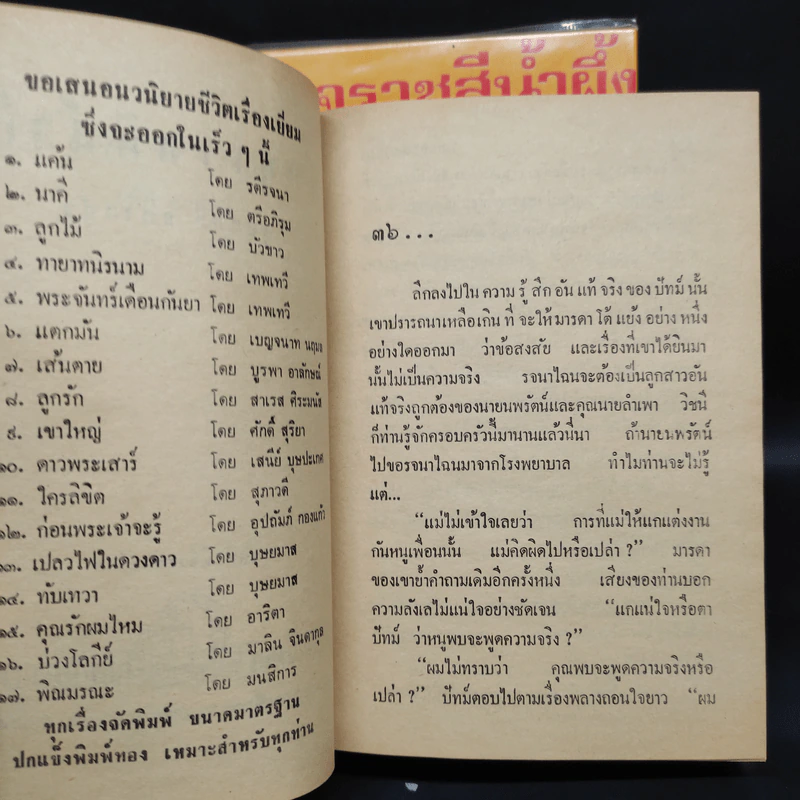 ราชสีน้ำผึ้ง
ขอเสนอนวนิยายชีวิตเรื่องเยี่ยม
ซึ่งจะออกในเร็ว ๆ นี้
๑. แค้น โดย รตีรจนา
๒. นาคี โดย ตรีอภิรุม
๓. ลูกไม้ โดย บัวขาว
๔. ทายาทนิรนาม โดย เทพเทวี
๕. พระจันทร์เดือนกันยา โดย เทพเทวี
๖. แตกมัน โดย เบญจนาท
๗. เส้นตาย โดย บูรพา อาลักษณ์
๘. ลูกรัก โดย สาเรส ศิระมนัย
๙. เขาใหญ่ โดย ศักดิ์ สุริยา
๑๐. ดาวพระเสาร์ โดย เสนีย์ บุษปะเกศ
๑๑. ใครลิขิต โดย สุภาวดี
๑๒. ก่อนพระเจ้าจะรู้ โดย อุปถัมภ์ กองแก้ว
๑๓. เปลวไฟในดวงดาว โดย บุษยมาส
๑๔. ทับเทวา โดย บุษยมาส
๑๕. คุณรักผมไหม โดย อาริตา
๑๖. บ่วงโลกีย์ โดย มาลิน จินดากุล
๑๗. พิณมรณะ โดย มนสิการ
ทุกเรื่องจัดพิมพ์ ขนาดมาตรฐาน
ปกแข็งพิมพ์ทอง เหมาะสำหรับทุกท่าน
๓๖...
ลึกลงไปใน ความ รู้ สึก อัน แท้ จริง ของ ปัทม์ นั้น
เขาปรารถนาเหลือเกิน ที่ จะให้ มารดา โต้ แย้ง อย่าง หนึ่ง
อย่างใดออกมา ว่าข้อสงสัย และเรื่องที่เขาได้ยินมา
นั้นไม่เป็นความจริง รจนาไฉนจะต้องเป็นลูกสาวอัน
แท้จริงถูกต้องของนายนพรัตน์และคุณนายลำเพา วิชนี
ก็ท่านรู้จักครอบครัวนี้มานานแล้วนี่นา ถ้านายนพรัตน์
ไปขอรจนาไฉนมาจากโรงพยาบาล ทำไมท่านจะไม่รู้
แต่...
“แม่ไม่เข้าใจเลยว่า การที่แม่ให้แกแต่งงาน
กับหนูเพื่อนนั้น แม่คิดผิดไปหรือเปล่า ?” มารดา
ของเขาย้ำคำถามเดิมอีกครั้งหนึ่ง เสียงของท่านบอก
ความลังเลไม่แน่ใจอย่างชัดเจน “แกแน่ใจหรือตา
ปัทม์ ว่าหนูพบจะพูดความจริง ?”
“ผมไม่ทราบว่า คุณพบจะพูดความจริงหรือ
เปล่า ?” ปัทม์ตอบไปตามเรื่องพลางถอนใจยาว “ผม